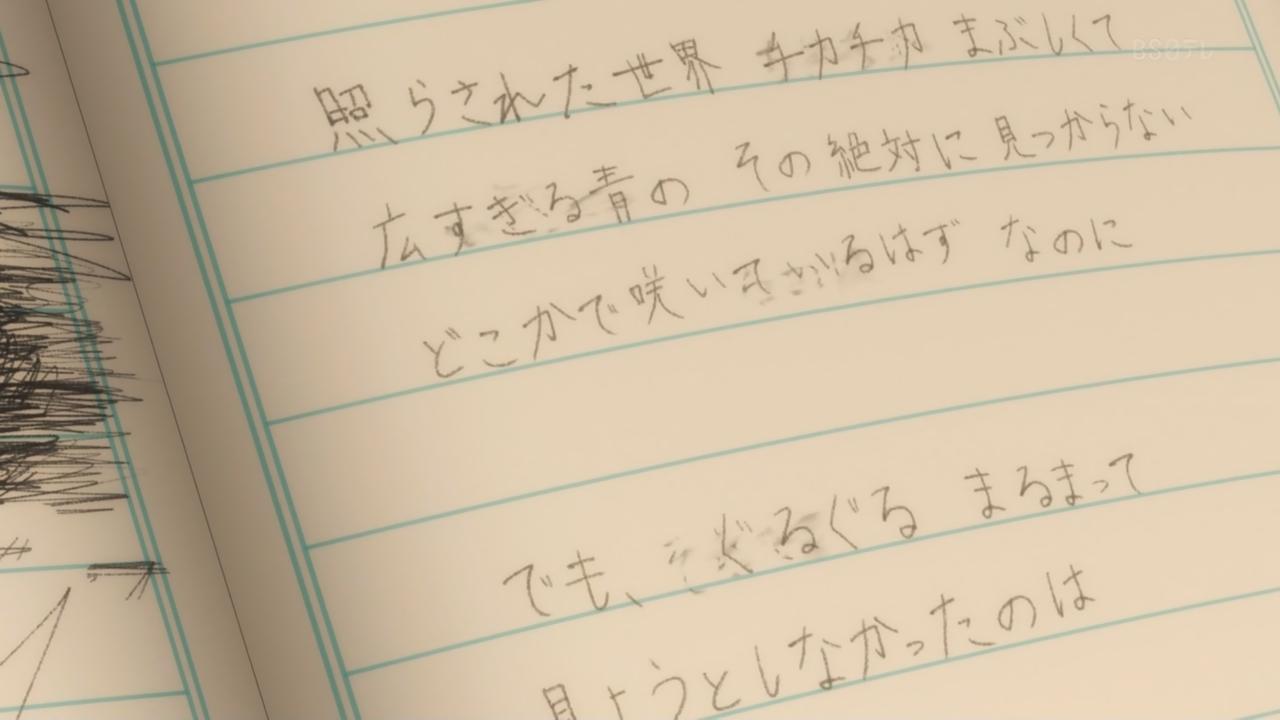 BS日テレ
照らされた世界 チカチカ まぶしくて
広すぎる青の その絶対に見つからない
どこかで咲いてるはず なのに
でも、ぐるぐる まるまって
見ようとしなかったのは